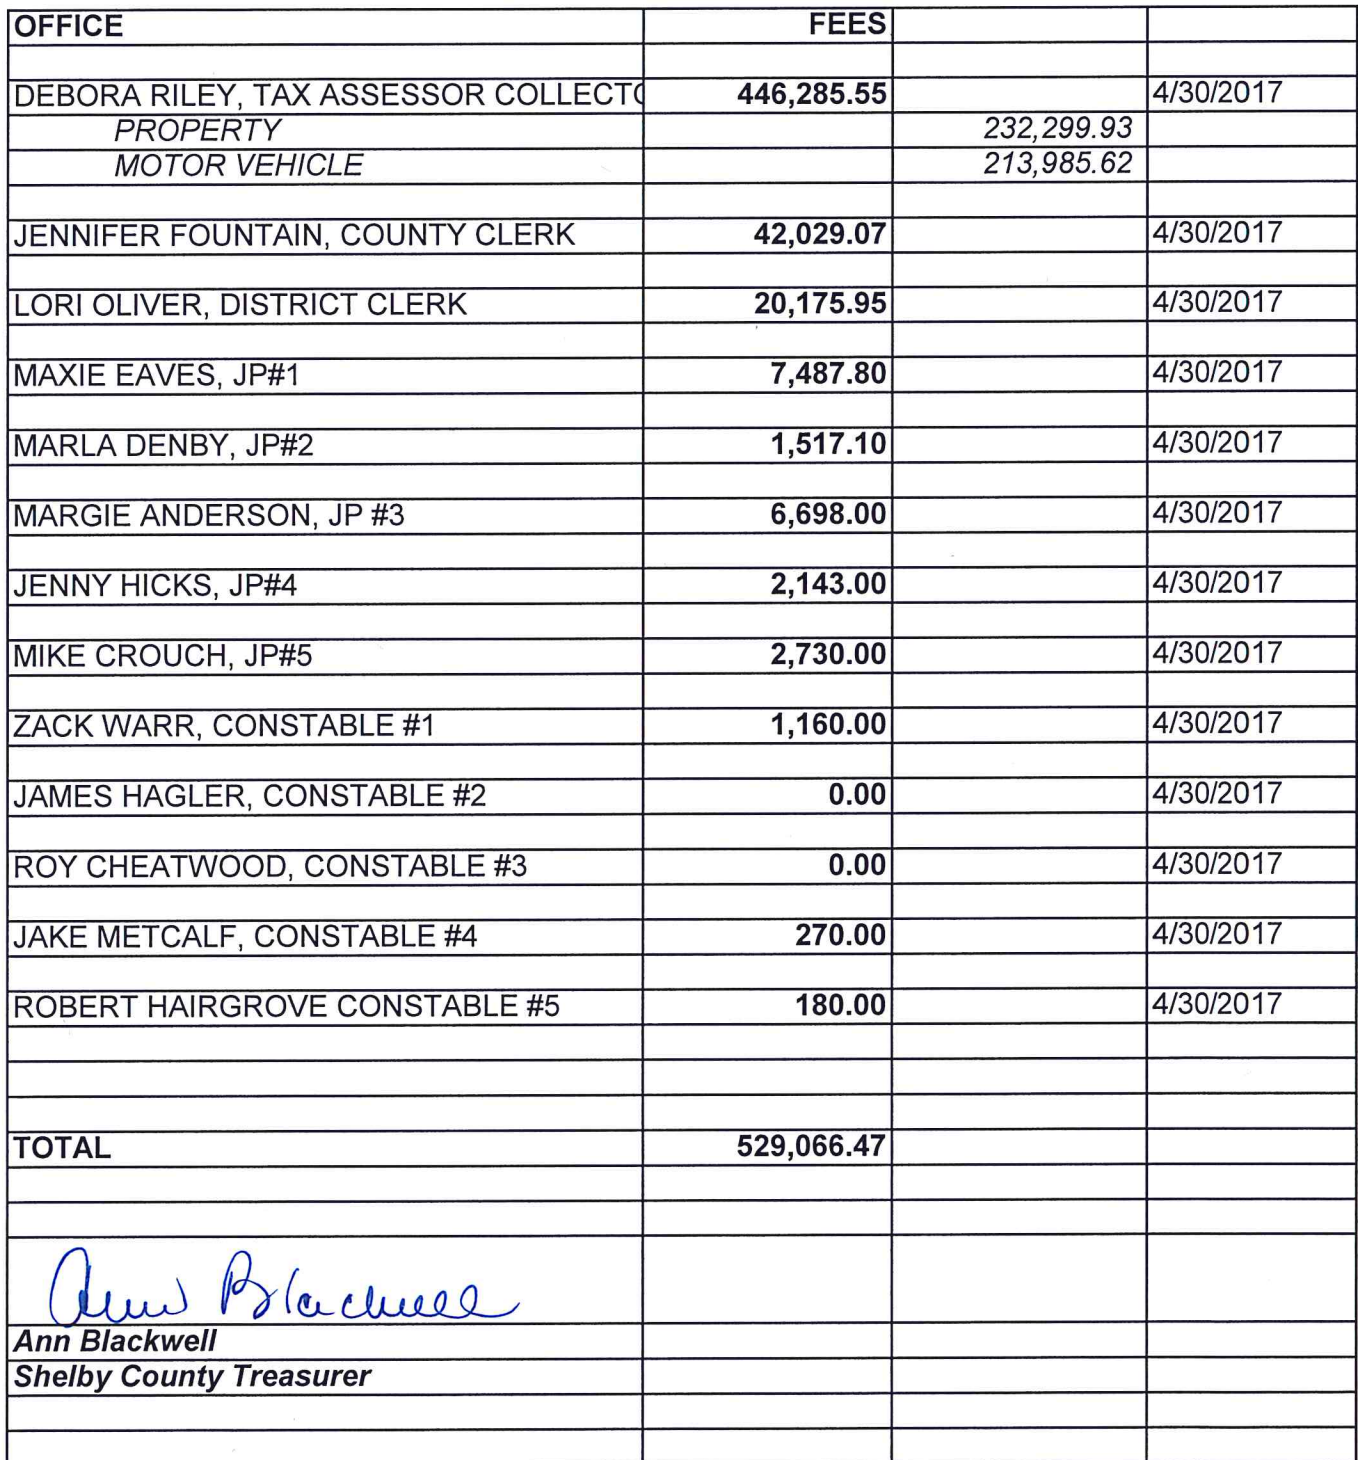 OFFICE FEES
DEBORA RILEY, TAX ASSESSOR COLLECTO 446,285.55 4/30/2017
PROPERTY 232,299.93
MOTOR VEHICLE 213,985.62
JENNIFER FOUNTAIN, COUNTY CLERK 42,029.07 4/30/2017
LORI OLIVER, DISTRICT CLERK 20,175.95 4/30/2017
MAXIE EAVES, JP#1 7,487.80 4/30/2017
MARLA DENBY, JP#2 1,517.10 4/30/2017
MARGIE ANDERSON, JP #3 6,698.00 4/30/2017
JENNY HICKS, JP#4 2,143.00 4/30/2017
MIKE CROUCH, JP#5 2,730.00 4/30/2017
ZACK WARR, CONSTABLE #1 1,160.00 4/30/2017
JAMES HAGLER, CONSTABLE #2 0.00 4/30/2017
ROY CHEATWOOD, CONSTABLE #3 0.00 4/30/2017
JAKE METCALF, CONSTABLE #4 270.00 4/30/2017
ROBERT HAIRGROVE CONSTABLE #5 180.00 4/30/2017
TOTAL 529,066.47
Ann Blackwell
Ann Blackwell
Shelby County Treasurer